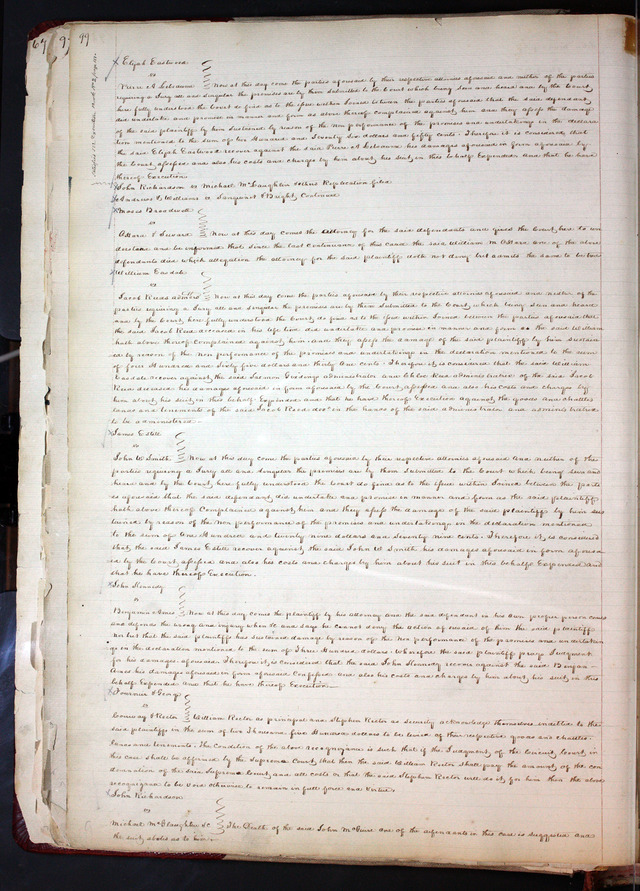 67 9 99
Elijah Eastwood
vs
Pierre A Labaume Now at this day come the parties aforesaid by their respective attornies aforesaid and neither of the parties
requiring a Jury all and singular the premises are by them submitted to the Court which being seen and heard and by the Court
here fully understood the Court do find as to the issue within Joined between the parties aforesaid that the said defendant
did undertake and promise in manner and form as above thereof complained against him and they assess the damage
of the said plaintiff by him sustained by reason of the non performance of the promises and undertakings in the declara
tion mentioned to the sum of two Hundred and Seventy Six dollars and fifty cents. Therefore it is considered that
the said Elijah Eastwood recover against the said Pierre A Labaume his damages aforesaid in form aforesaid by
the Court assessed and also his costs and charges by him about his suit in this behalf Expended and that he have
thereof Execution
John Richardson vs Michael McLaughlin & others Replication filed
Andrew & Williams vs Sanquent & Bright Continued
Moses Broadwell
vs
OHara & Seward Now at this day comes the Attorney for the said defendants and gives the Court here to un
derstand and be informed that since the last continuance of this cause the said William M OHara one of the above
defendants died which allegation the attorney for the said plaintiff doth not deny but admits the same to be true
William
vs
Jacob Reeds admors Now at this day come the parties aforesaid by their respective attornies aforesaid and neither of the
parties requiring a Jury all and singular the premises are by them submitted to the Court, which being seen and heard
and by the Court, here fully understood the Court do find as to the issue within Joined between the parties aforesaid that
the said Jacob Reed deceased in his life time did undertake and promise in manner and form as the said William
hath above thereof complained against him. and they assess the damage of the said plaintiff by him sustain
ed by reason of the Non performance of the promises and undertakings in the declaration mentioned to the sum
of four Hundred and Sixty five dollars and thirty one cents Therefore it is considered that the said William
recover against the said administrator and Reed administratrix of the said Jacob
Reed deceased his damages aforesaid in form aforesaid by the Court assessed and also his costs and charges by
him about his suit in this behalf Expended and that he have thereof Execution against the goods and chattles
lands and tenements of the said Jacob Reed decd in the hands of the said administrator and administratrix
to be administered
James Estill
vs
John W Smith Now at this day come the parties aforesaid by their respective attornies aforesaid and neither of the
parties requiring a Jury all and singular the premises are by them submitted to the Court which being seen and
heard and by the Court, here fully understood the Court do find as to the issue within Joined between the parti
es aforesaid that the said defendant did undertake and promise in manner and form as the said plaintiff
hath above thereof Complained against him and they assess the damage of the said plaintiff by him sus
tained by reason of the Non performance of the promises and undertakings in the declaration mentioned
to the sum of One Hundred and twenty nine dollars and Seventy nine cents. Therefore it is considered
that the said James Estill recover against the said John W Smith his damages aforesaid in form aforesa
id by the Court, assessed and also his costs and charges by him about his suit in this behalf Expended and
that he have thereof Execution.
John Kennedy
vs
Benjamin Ames Now at this day comes the plaintiff by his attorney and the said defendant in his own proper person comes
and defends the wrong and injury when &c and says he cannot deny the action aforesaid of him the said plaintiff
nor but that the said plaintiff has sustained damage by reason of the Non performance of the promises and undertakin
gs in the declaration mentioned to the sum of Three Hundred dollars. Wherefore the said plaintiff prays Judgment
for his damages aforesaid Therefore it is considered that the said John Kennedy recover against the said Benjam
Ames his damages aforesaid in form aforesaid Confessed and also his costs and charges by him about his suit in this
behalf Expended and that he have thereof Execution
& George
vs
Conway & Rector William Rector as principal and Stephen Rector as security acknowledge themselves indebted to the
said plaintiff in the sum of two Thousand five Hundred dollars to be levied of their respective goods and chattles
lands and tenements. The Condition of the above recognizance is such that if the Judgment of the Circuit Court in
this case shall be affirmed by the Supreme Court, that then the said William Rector shall pay the amount of the con
demnation of the said Supreme Court, and all costs or that the said Stephen Rector will do it for him then the above
recognizance to be void otherwise to remain in full force and virtue.
John Richardson
vs
Michael McLaughlin &c The Death of the said John McGuire one of the defendants in this case is suggested and
the suit abates as to him